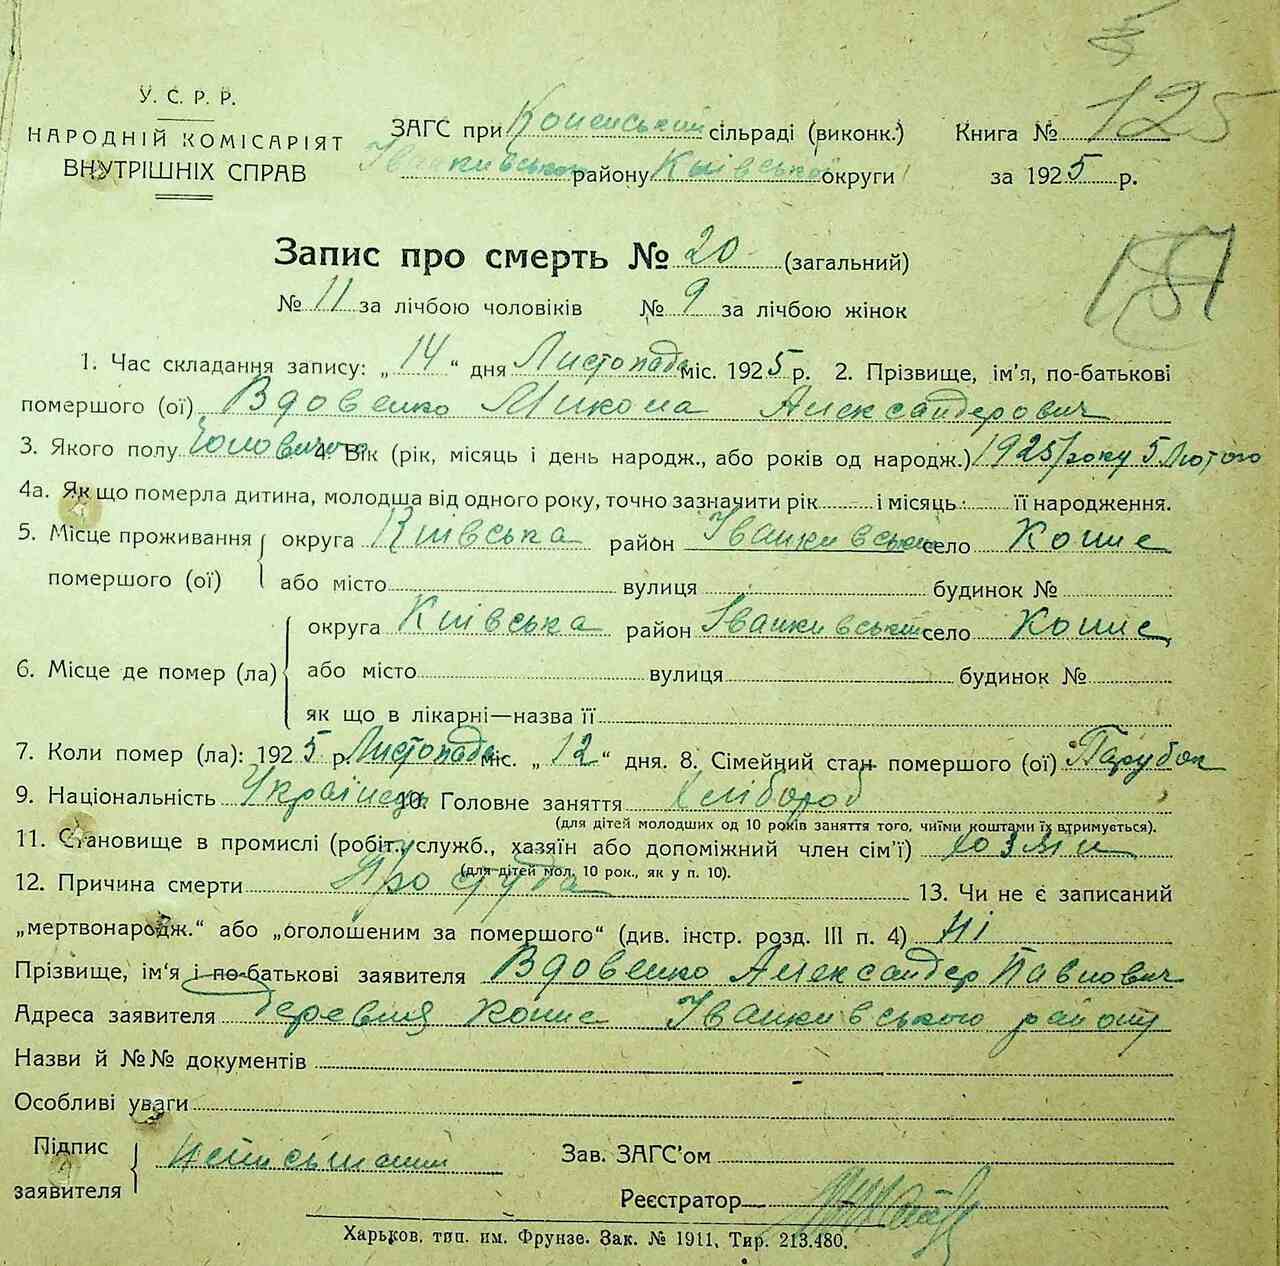 125
У. С. Р. Р.
НАРОДНІЙ КОМІСАРІЯТ
ВНУТРІШНІХ СПРАВ
ЗАГС при сільраді (виконк.) Книга №
Іванківського району Київської округи за 1925 р.
Запис про смерть № 20 (загальний)
№ 11 за лічбою чоловіків № 9 за лічбою жінок
1. Час складання запису: „14“ дня Листопада міс. 1925 р. 2. Прізвище, ім'я, по-батькові
помершого (ої) Вдовенко Микола Александерович
3. Якого полу 4. Вік (рік, місяць і день народж., або років од народж.) 1925 року 5 Лютого
4а. Як що померла дитина, молодша від одного року, точно зазначити рік і місяць її народження.
5. Місце проживання помершого (ої) округа Київська район Іванківський село
або місто вулиця будинок №
6. Місце де помер (ла) округа Київська район Іванківський село
або місто вулиця будинок №
як що в лікарні—назва її
7. Коли помер (ла): 1925 р. Листопада міс. „12“ дня. 8. Сімейний стан помершого (ої) Парубок
9. Національність Українець 10. Головне заняття Хлібороб
(для дітей молодших од 10 років заняття того, чиїми коштами їх втримується).
11. Становище в промислі (робіт., служб., хазяїн або допоміжний член сім'ї)
(для дітей мол. 10 рок., як у п. 10).
12. Причина смерти Простуда 13. Чи не є записаний
„мертвонародж.“ або „оголошеним за помершого“ (див. інстр. розд. III п. 4) Ні
Прізвище, ім'я і по-батькові заявителя Вдовенко Александер Павлович
Адреса заявителя деревня Іванківського району
Назви й №№ документів
Особливі уваги
Підпис заявителя неписьменний Зав. ЗАГС'ом
Реєстратор
Харьков, тип. им. Фрунзе. Зак. № 1911, Тир. 213.480.